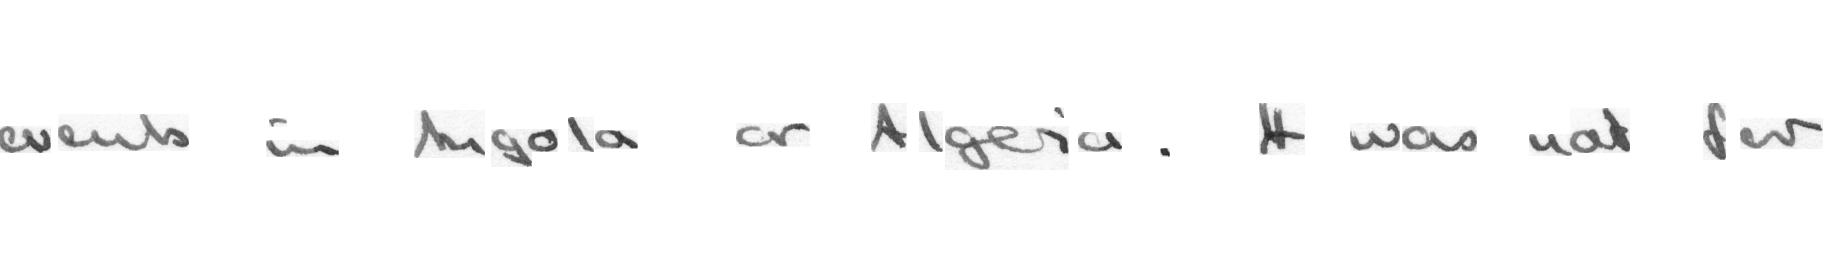 events in Angola or Algeria. It was not for